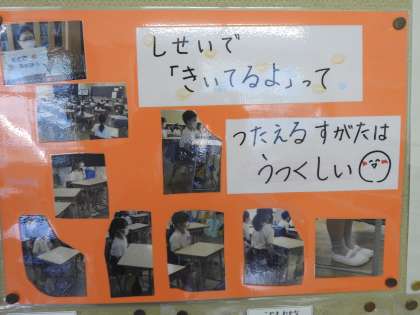 しせいで
「きいてるよ」って
つたえる すがたは
うつくしい